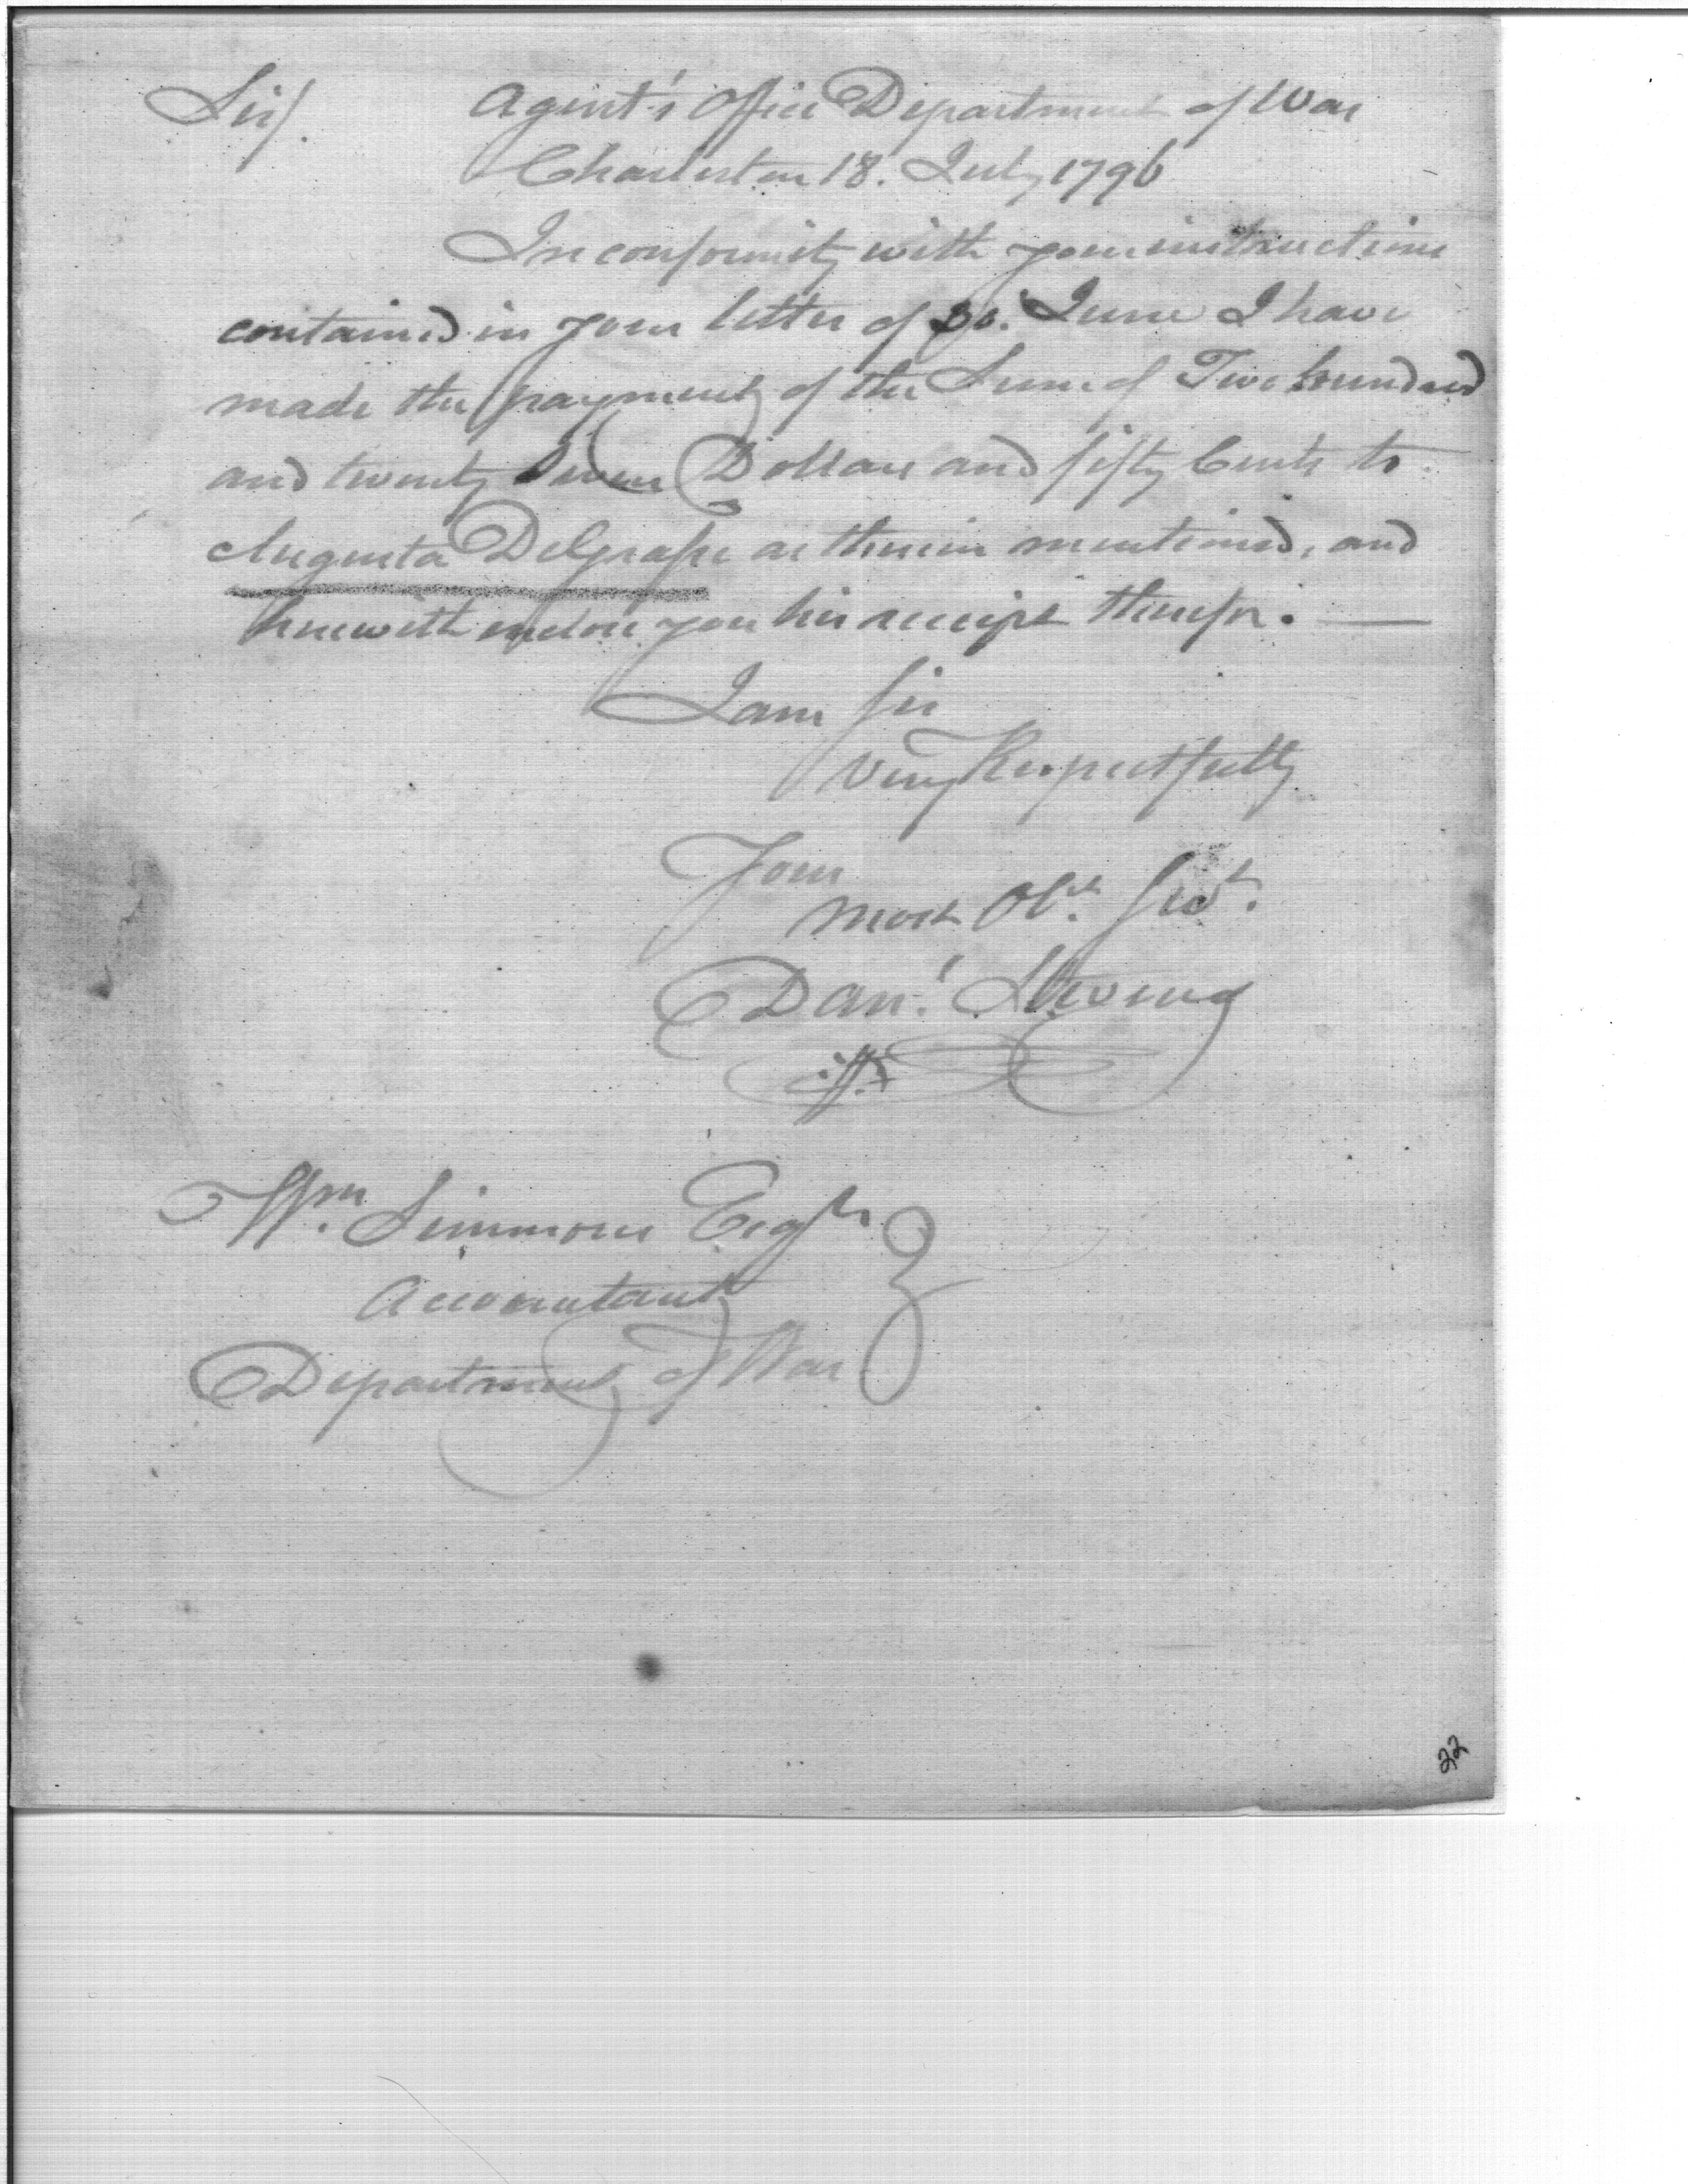 Sir/. Agent's Office Department of War
Charleston 18. July 1796
In conformity with your instructions
contained in your letter of 30. June I have
made the payment of the Sum of Two hundred
and twenty Seven Dollars and fifty Cents to
Augusta DeGrasse as therein mentioned, and
herewith enclose you his receipt therefor. —
I am Sir
Very Respectfully
Your
most Obt. Servt.
Danl. Stevens
Wm. Simmons Esqr.
Accountant
Department of War
22